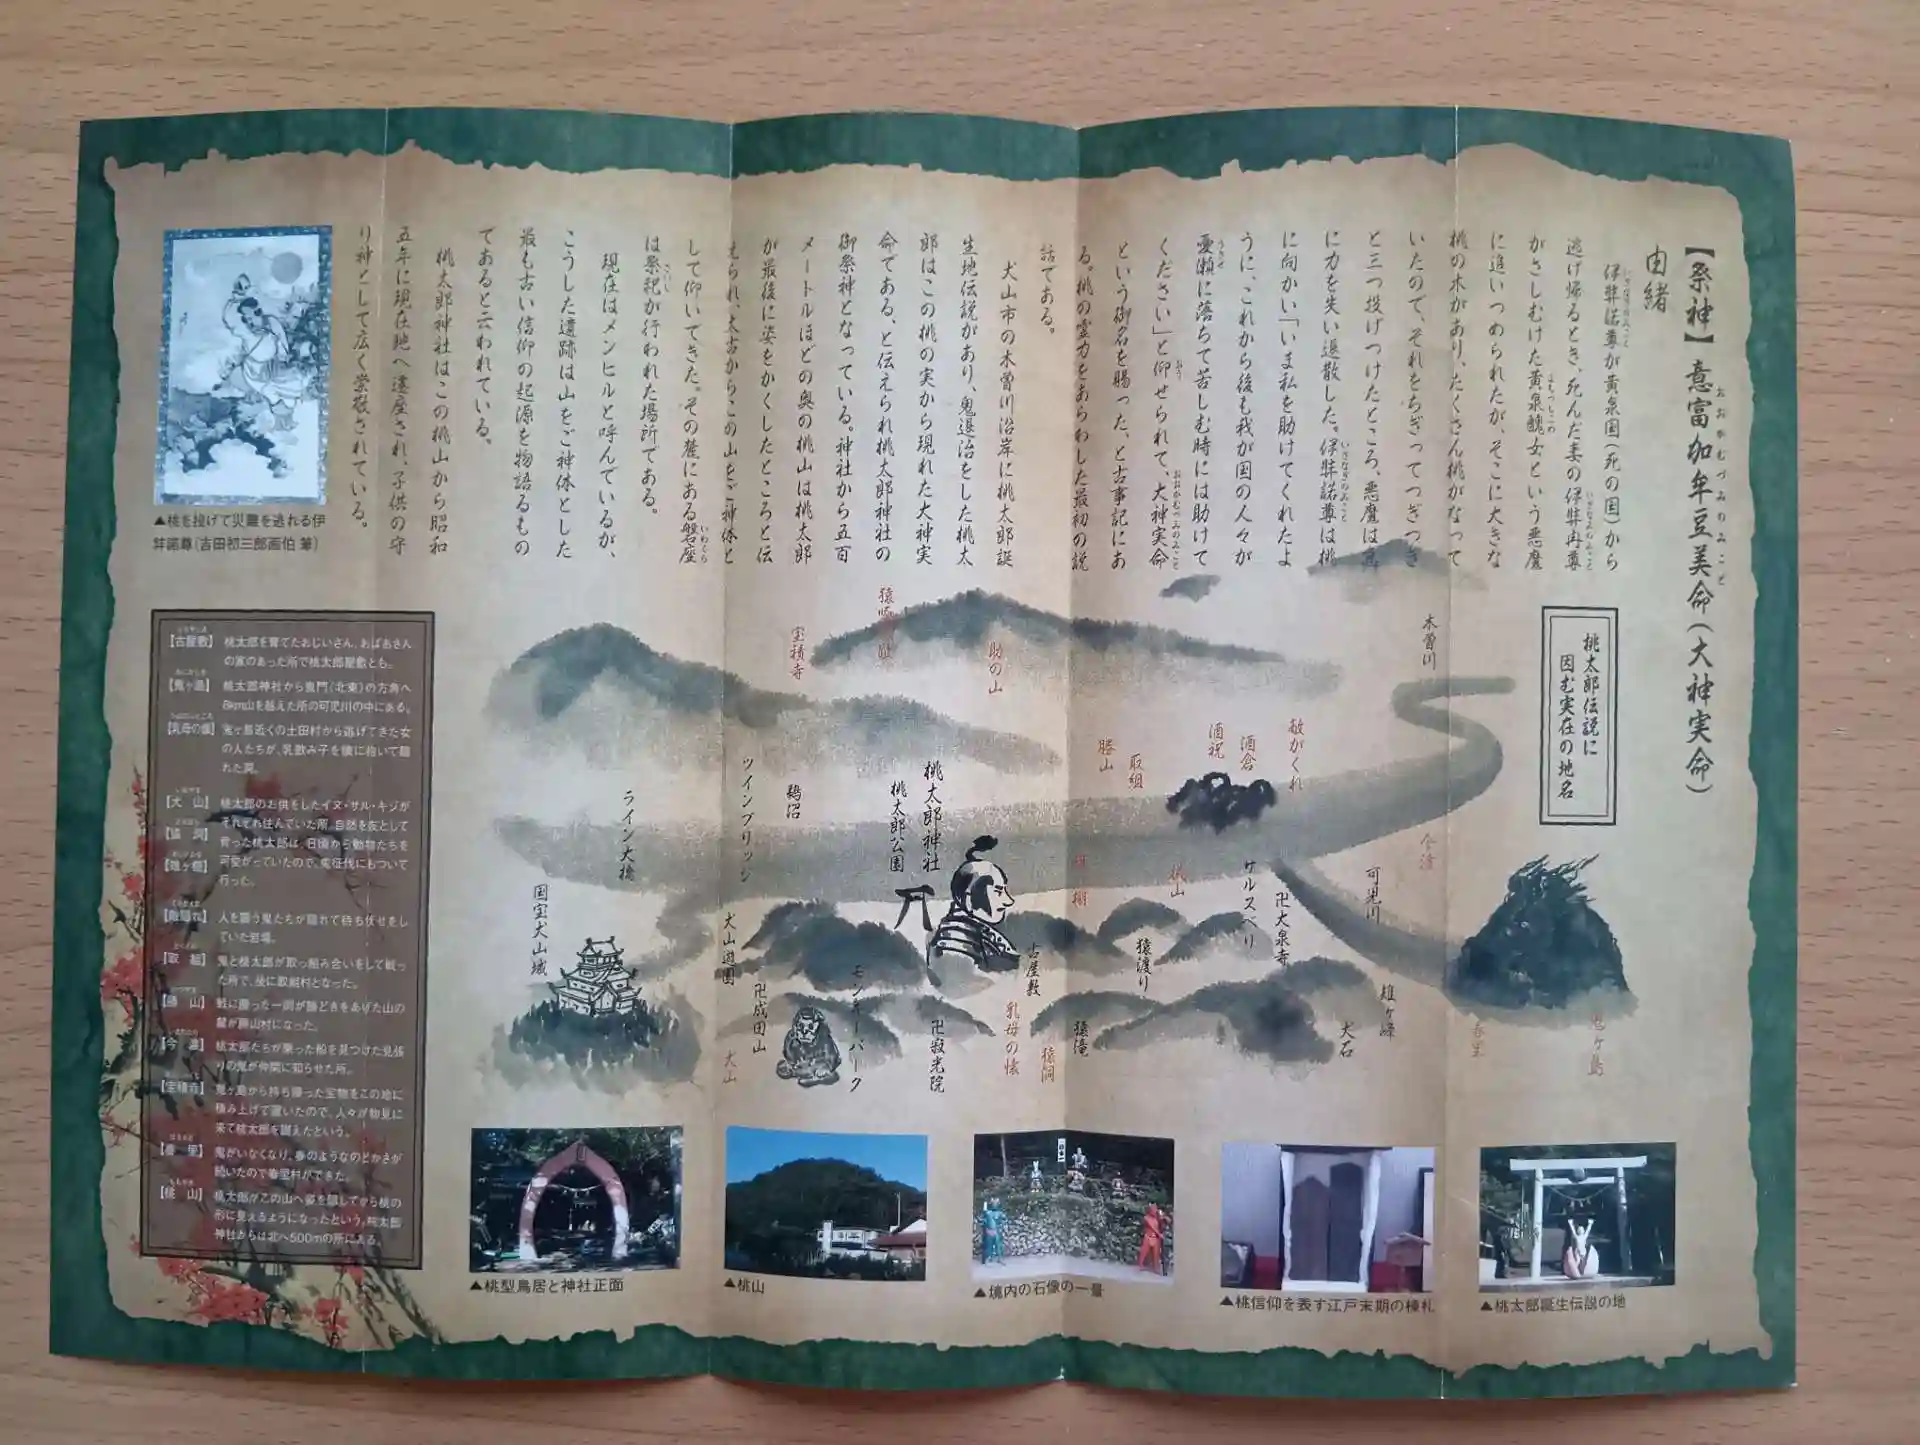 【祭神】意富加牟豆美命(大神実命)
おおかむづみのみこと
由緒
伊弉諾尊が黄泉国(死の国)から
逃げ帰るとき、死んだ妻の伊弉冉尊
がさしむけた黄泉醜女という悪魔
に追いつめられたが、そこに大きな
桃の木があり、たくさん桃がなって
いたので、それをちぎってつぎつぎ
と三つ投げつけたところ、悪魔は急
に力を失い退散した。伊弉諾尊は桃
に向かい「いま私を助けてくれたよ
うに、これから後も我が国の人々が
憂瀬に落ちて苦しむ時には助けて
ください」と仰せられて、大神実命
という御名を賜った、と古事記にあ
る。桃の霊力をあらわした最初の説
話である。
犬山市の木曽川沿岸に桃太郎誕
生地伝説があり、鬼退治をした桃太
郎はこの桃の実から現れた大神実
命である、と伝えられ桃太郎神社の
御祭神となっている。神社から五百
メートルほどの奥の桃山は桃太郎
が最後に姿をかくしたところと伝
えられ、太古からこの山をご神体と
して仰いできた。その麓にある磐座
は祭祀が行われた場所である。
現在はメンヒルと呼んでいるが、
こうした遺跡は山をご神体とした
最も古い信仰の起源を物語るもの
であると云われている。
桃太郎神社はこの桃山から昭和
五年に現在地へ遷座され、子供の守
り神として広く崇敬されている。
▲桃を投げて災難を逃れる伊
弉諾尊(吉田初三郎画伯 筆)
桃太郎伝説に
因む実在の地名
木曽川
敵がくれ
酒倉
酒祝
取組
勝山
助の山
宝積寺
桃太郎神社
桃太郎公園
鵜沼
ツインブリッジ
ライン大橋
国宝犬山城
今渡
可児川
卍大泉寺
サルスベリ
桃山
猿渡り
古屋敷
犬山遊園
卍成田山
犬山
モンキーパーク
卍寂光院
乳母の懐
猿洞
猿滝
雉ヶ峰
犬石
春里
鬼ヶ島
【古屋敷】 桃太郎を育てたおじいさん、おばあさん
の家のあった所で桃太郎屋敷とも。
【鬼ヶ島】 桃太郎神社から鬼門(北東)の方角へ
8km山を越えた所の可児川の中にある。
【乳母の懐】 鬼ヶ島近くの土田村から逃げてきた女
の人たちが、乳飲み子を懐に抱いて隠
れた洞。
【犬 山】 桃太郎のお供をしたイヌ・サル・キジが
【猿 洞】 それぞれ住んでいた所。自然を友として
育った桃太郎は、日頃から動物たちを
【雉ヶ棚】 可愛がっていたので、鬼征伐にもついて
行った。
【敵隠れ】 人を襲う鬼たちが隠れて待ち伏せをし
ていた岩場。
【取 組】 鬼と桃太郎が取っ組み合いをして戦っ
た所で、後に取組村となった。
【勝 山】 戦に勝った一同が勝どきをあげた山の
麓が勝山村になった。
【今 渡】 桃太郎たちが乗った船を見つけた見張
りの鬼が仲間に知らせた所。
【宝積寺】 鬼ヶ島から持ち帰った宝物をこの地に
積み上げて置いたので、人々が物見に
来て桃太郎を讃えたという。
【春 里】 鬼がいなくなり、春のようなのどかさが
続いたので春里村ができた。
【桃 山】 桃太郎がこの山へ姿を隠してから桃の
形に見えるようになったという。桃太郎
神社からは北へ500mの所にある。
▲桃型鳥居と神社正面
▲桃山
▲境内の石像の一景
▲桃信仰を表す江戸末期の棟札
▲桃太郎誕生伝説の地